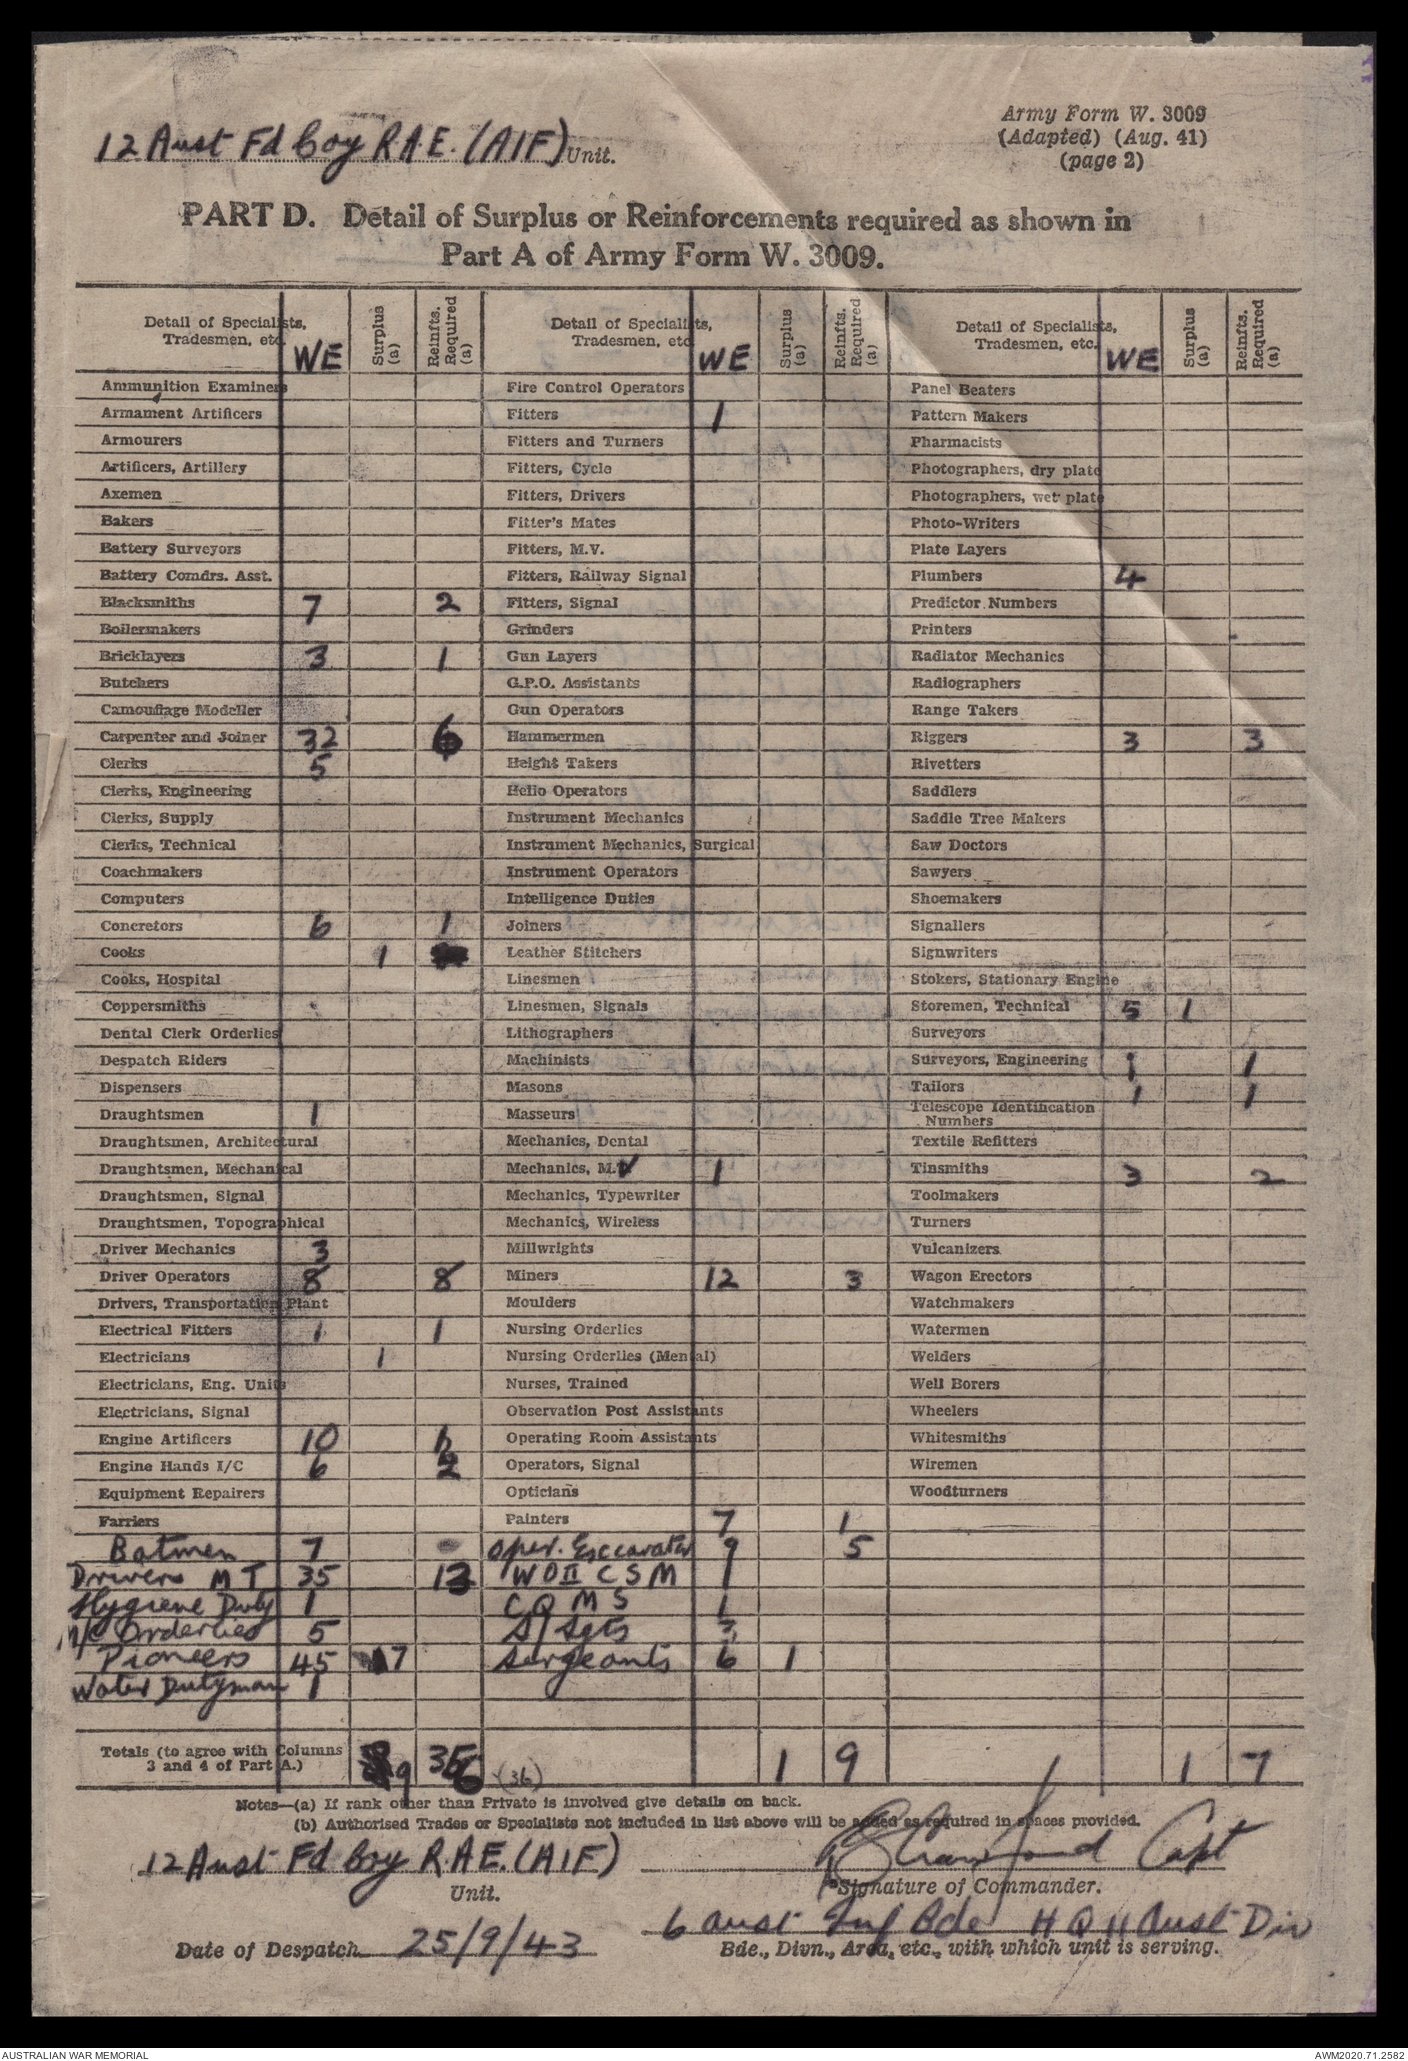 Army Form W. 3009
(Adapted) (Aug. 41)
(page 2)
12 Aust Fd Coy R.A.E. (AIF) Unit.
PART D. Detail of Surplus or Reinforcements required as shown in
Part A of Army Form W. 3009.
Detail of Specialists, Tradesmen, etc. WE Surplus (a) Reinfts. Required (a) Detail of Specialists, Tradesmen, etc. WE Surplus (a) Reinfts. Required (a) Detail of Specialists, Tradesmen, etc. WE Surplus (a) Reinfts. Required (a)
Ammunition Examiners Fire Control Operators Panel Beaters
Armament Artificers Fitters 1 Pattern Makers
Armourers Fitters and Turners Pharmacists
Artificers, Artillery Fitters, Cycle Photographers, dry plate
Axemen Fitters, Drivers Photographers, wet plate
Bakers Fitter's Mates Photo-Writers
Battery Surveyors Fitters, M.V. Plate Layers
Battery Comdrs. Asst. Fitters, Railway Signal Plumbers 4
Blacksmiths 7 2 Fitters, Signal Predictor Numbers
Boilermakers Grinders Printers
Bricklayers 3 1 Gun Layers Radiator Mechanics
Butchers G.P.O. Assistants Radiographers
Camouflage Modeller Gun Operators Range Takers
Carpenter and Joiner 32 6 Hammermen Riggers 3 3
Clerks 5 Height Takers Rivetters
Clerks, Engineering Helio Operators Saddlers
Clerks, Supply Instrument Mechanics Saddle Tree Makers
Clerks, Technical Instrument Mechanics, Surgical Saw Doctors
Coachmakers Instrument Operators Sawyers
Computers Intelligence Duties Shoemakers
Concretors 6 1 Joiners Signallers
Cooks 1 Leather Stitchers Signwriters
Cooks, Hospital Linesmen Stokers, Stationary Engine
Coppersmiths Linesmen, Signals Storemen, Technical 5 1
Dental Clerk Orderlies Lithographers Surveyors
Despatch Riders Machinists Surveyors, Engineering 1 1
Dispensers Masons Tailors 1 1
Draughtsmen 1 Masseurs Telescope Identification Numbers
Draughtsmen, Architectural Mechanics, Dental Textile Refitters
Draughtsmen, Mechanical Mechanics, M.V 1 Tinsmiths 3 2
Draughtsmen, Signal Mechanics, Typewriter Toolmakers
Draughtsmen, Topographical Mechanics, Wireless Turners
Driver Mechanics 3 Millwrights Vulcanizers
Driver Operators 8 8 Miners 12 3 Wagon Erectors
Drivers, Transportation Plant Moulders Watchmakers
Electrical Fitters 1 1 Nursing Orderlies Watermen
Electricians 1 Nursing Orderlies (Mental) Welders
Electricians, Eng. Units Nurses, Trained Well Borers
Electricians, Signal Observation Post Assistants Wheelers
Engine Artificers 10 Operating Room Assistants Whitesmiths
Engine Hands I/C 6 2 Operators, Signal Wiremen
Equipment Repairers Opticians Woodturners
Farriers Painters 7 1
Batmen 7 Oper. Excavator 9 5
Drivers M T 35 13 WOII C S M 1
Hygiene Duty 1 C Q M S 1
M/C Orderlies 5 S/Sgts 3
Pioneers 45 7 Sergeants 6 1
Water Dutyman 1
Totals (to agree with Columns 3 and 4 of Part A.) 9 36 (36) 1 9 1 7
Notes—(a) If rank other than Private is involved give details on back.
(b) Authorised Trades or Specialists not included in list above will be added as required in spaces provided.
12 Aust Fd Coy R.A.E. (AIF) Crawford Capt
Unit. Signature of Commander.
6 Aust Inf Bde HQ 11 Aust Div
Date of Despatch 25/9/43 Bde., Divn., Area, etc., with which unit is serving.
AUSTRALIAN WAR MEMORIAL AWM2020.71.2582